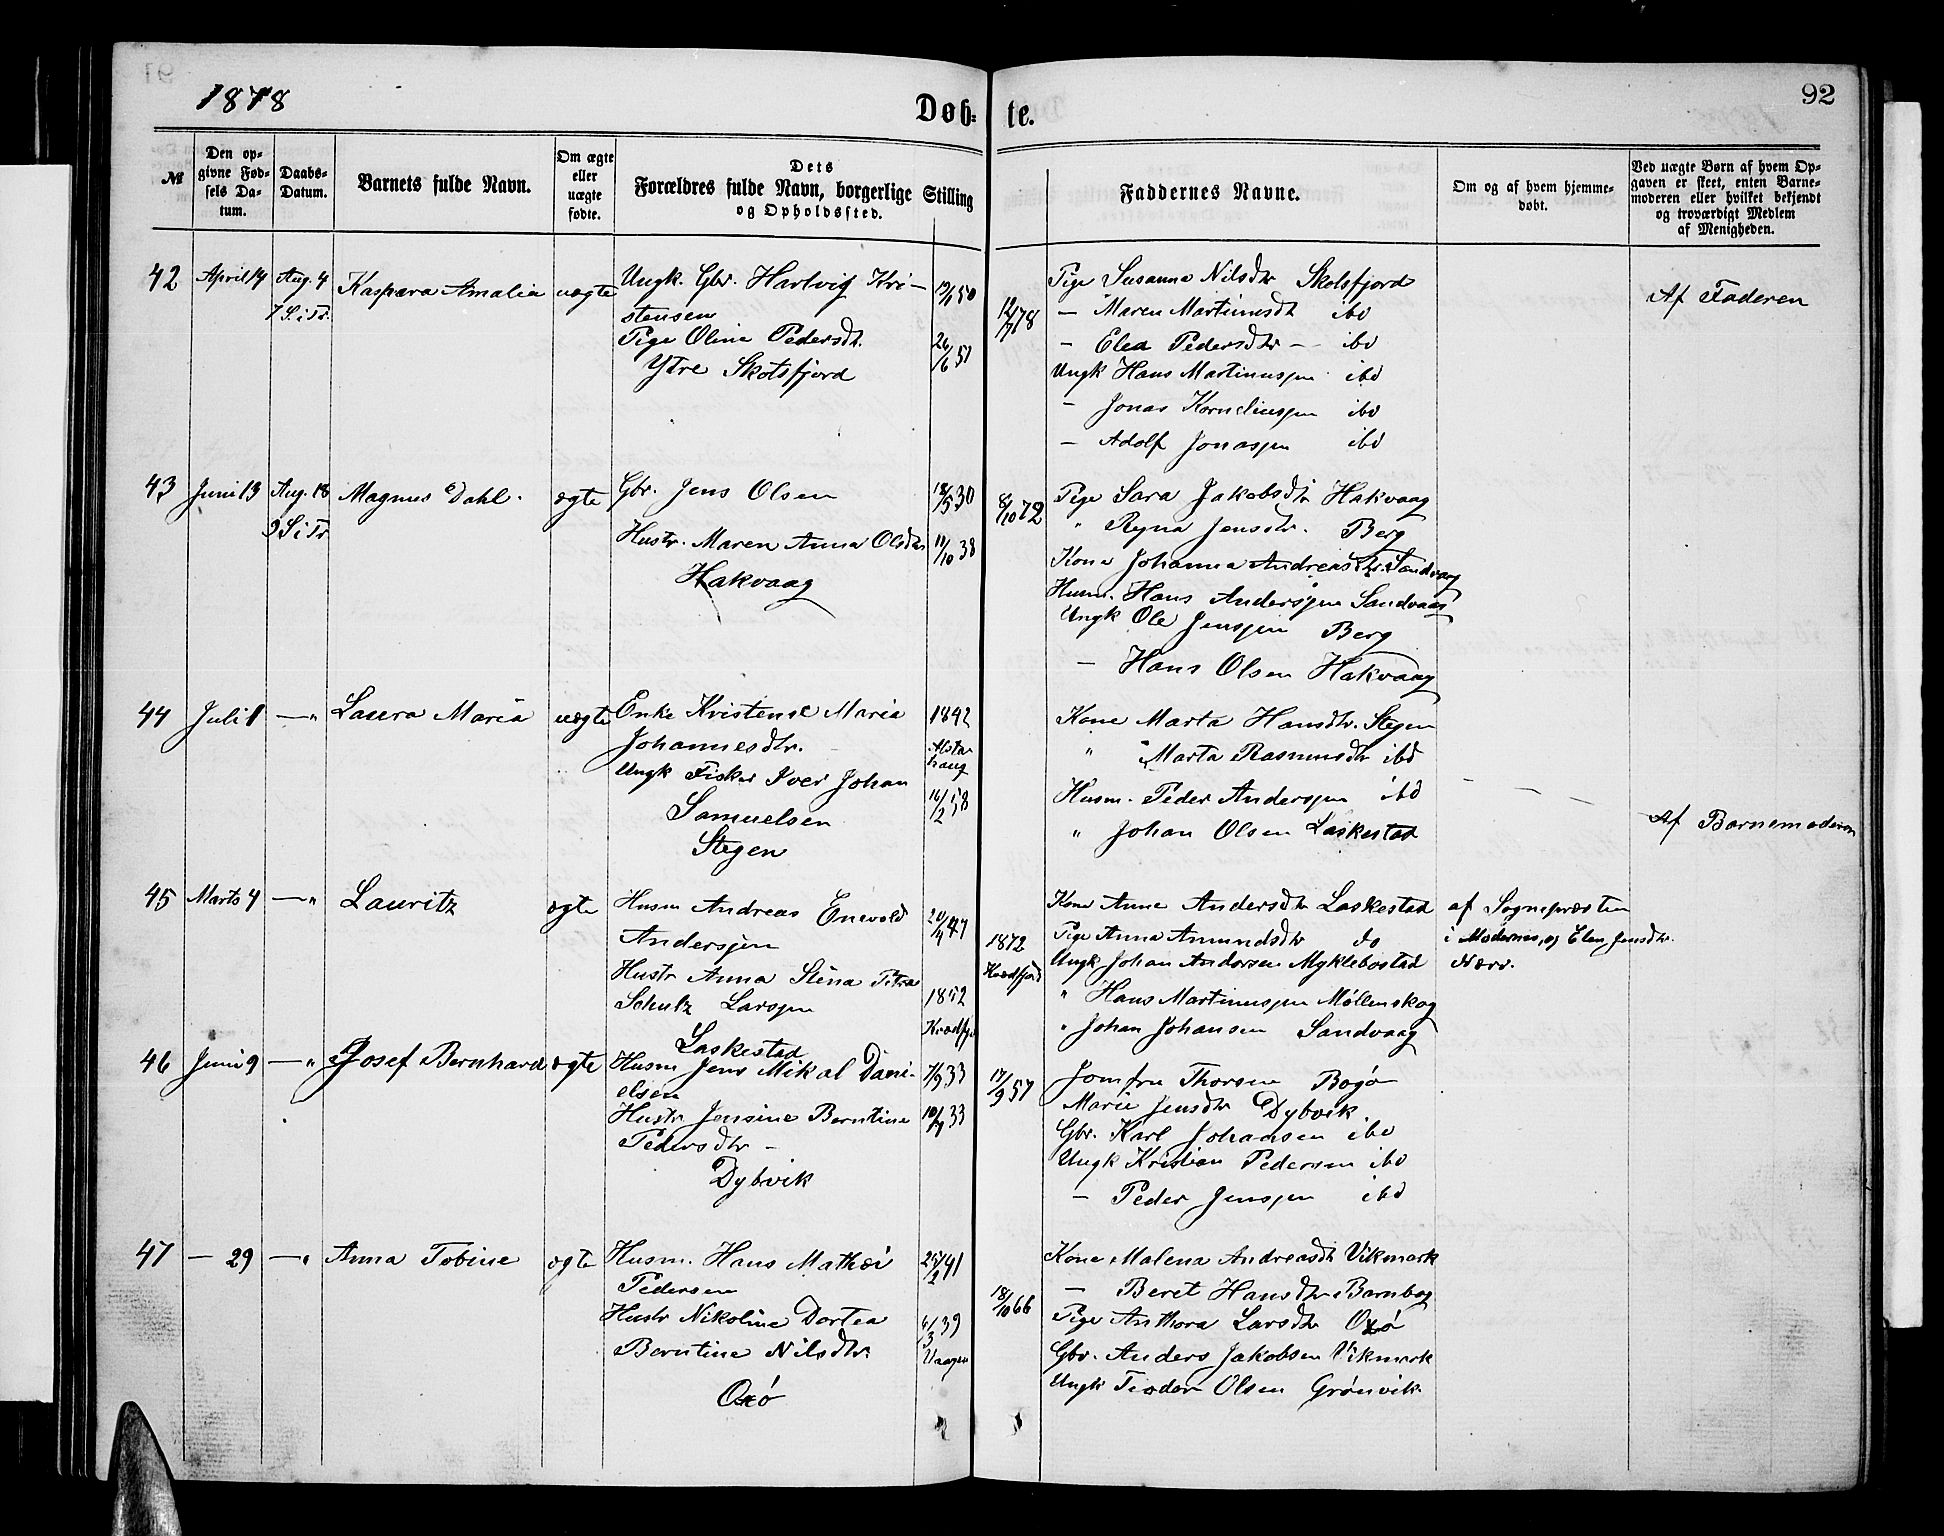 1878
Døb=
te.
92
№
Den op-
givne Fød-
sels Da-
tum.
Daabs-
Datum.
Barnets fulde Navn.
Om ægte
eller
uægte
fødte.
Dets
Forældres fulde Navn, borgerlige Stilling
og Opholdssted.
Faddernes Navne.
Om og af hvem hjemme-
døbt.
Ved uægte Børn af hvem Op-
gaven er skeet, enten Barne-
moderen eller hvilket bekjendt
og troværdigt Medlem
af Menigheden.
42 April 14 Aug. 4 Kaspara Amalia uægte
7 S. i Tr.
Ungk. Gbr. Hartvig Kri-
stensen
Pige Oline Pedersdtr. 26/6 51
Ytre Skotsfjord
12/7 78
Pige Susanna Nilsdtr Skotsfjord
— Maren Martinusdt ibd
— Elea Pedersdtr — ibd
Ungk Hans Martinussen ibd
— Jonas Korneliussen ibd
— Adolf Jonassen ibd
Af Faderen
43 Juni 13 Aug. 18 Magnus Dahl. ægte
9 S i Tr
Gbr. Jens Olsen 18/5 30
Hustr. Maren Anna Olsdtr 11/10 38
Hakvaag
8/10 72
Pige Sara Jakobsdtr Hakvaag
" Regna Jensdtr. Berg
Kone Johanna Andreasdtr. Sandvaag
Husm. Hans Andersen Sandvaag
Ungk Ole Jenssen Berg
— Hans Olsen Hakvaag
44 Juli 1 —" Laura Maria uægte
Enke Kristense Maria 1842
Johannesdtr. Alsta-
haug
Ungk Fisker Iver Johan 16/2 58
Samuelsen
Stegen
Kone Marta Hansdtr. Stegen
" Marta Rasmusdtr ibd
Husm. Peder Andersen ibd
" Johan Olsen Laskestad
Af Barnemoderen
45 Marts 4 —" Lauritz ægte
Husm Andreas Enevold 20/4 47
Andersen
Hustr Anna Stina Petra
Schutz Larsen 1852
Laskestad
1872
Kvædfjord
Kone Anne Andersdtr Laskestad
Pige Anna Amundsdtr do
Ungk Johan Andersen Myklebostad
" Hans Martinussen Møllenskog
" Johan Johansen Sandvaag
af Sognepræsten
i Moderens, og Elen Jensdtr.
Nærv.
46 Juni 9 —" Josef Bernhard ægte
Husm Jens Mikal Dani- 7/9 33
elsen
Hustr Jensine Berntine 10/7 33
Pedersdtr —
Dybvik
17/9 57
Jomfru Thorsen Bogø
Marie Jensdtr Dybvik.
Gbr. Karl Johansen ibd
Ungk Kristian Pedersen ibd
— Peder Jenssen ibd
47 — 29 —" Anna Tobine ægte
Husm. Hans Mathæi 25/2 41
Pedersen
Hustr Nikoline Dortea 6/3 39
Berntine Nilsdtr. Vaagen
Oxø
18/10 66
Kone Malena Andreasdt Vikmark
— Beret Hansdtr Barnbog
Pige Anthora Larsdtr Oxø
Gbr. Anders Jakobsen Vikmark
Ungk Teodor Olsen Grønvik